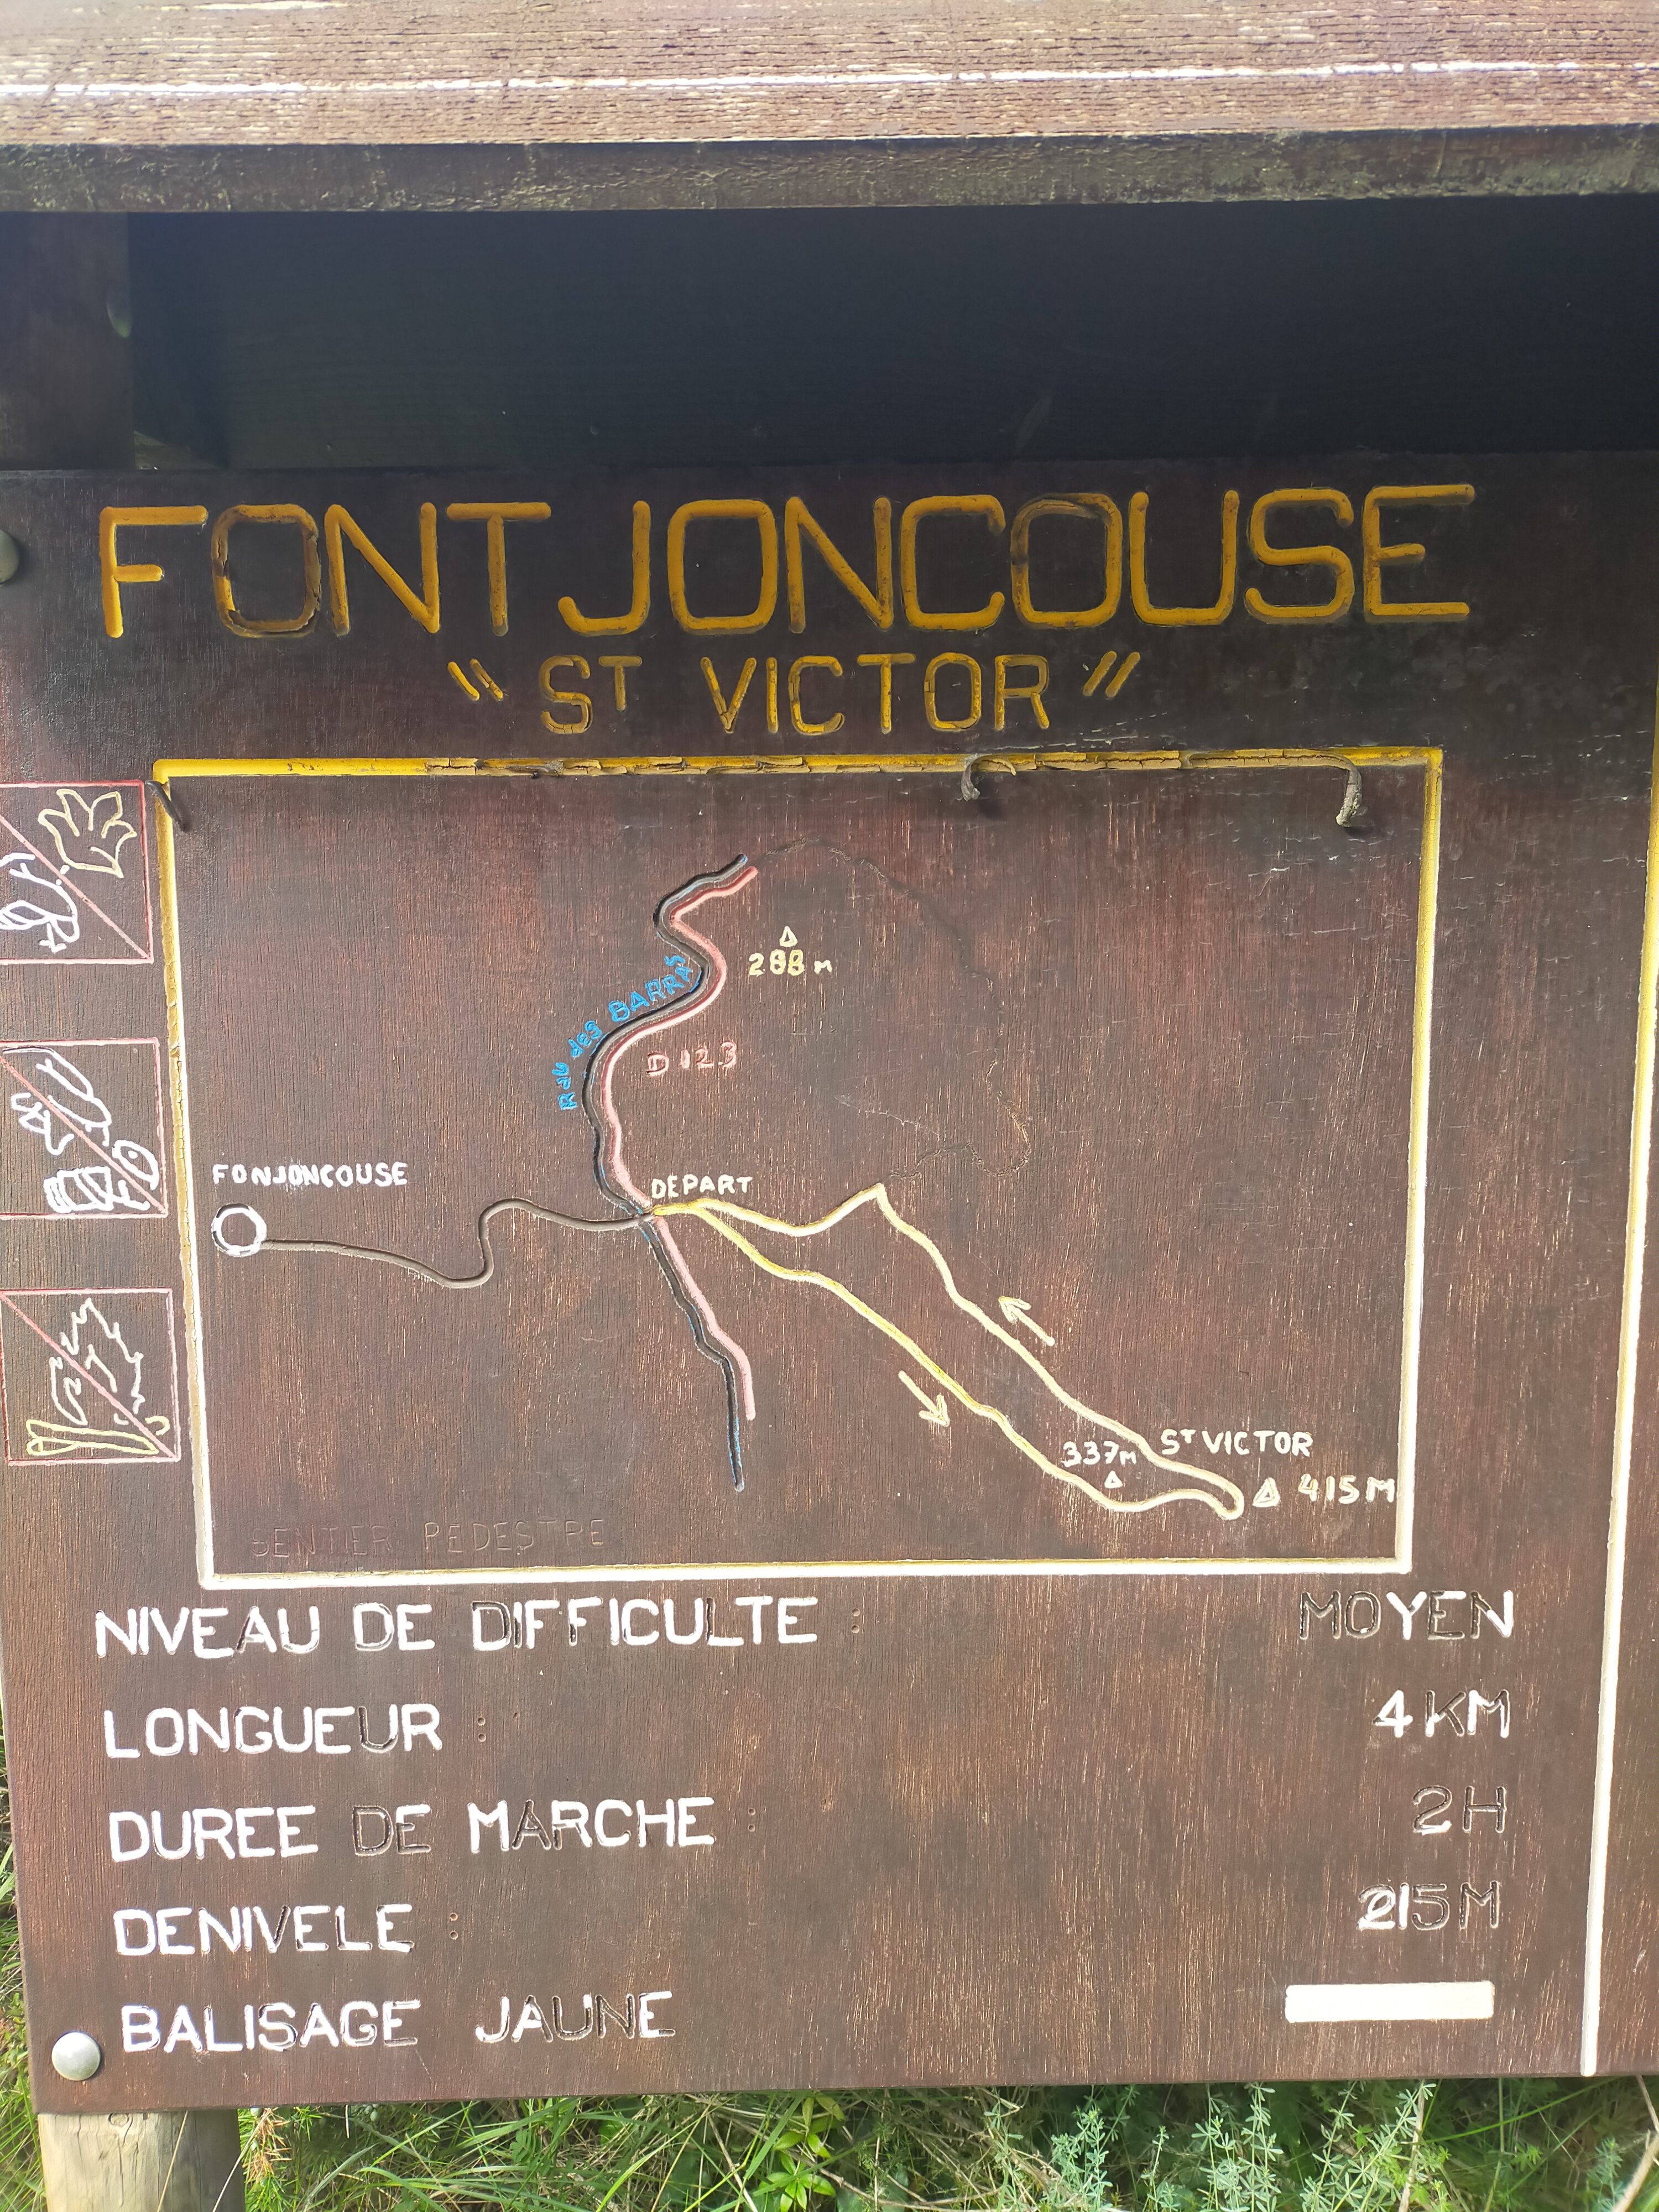 FONTJONCOUSE
"ST VICTOR"
288 m
Rau des BARRAS
D 123
FONJONCOUSE
DEPART
ST VICTOR
337M
415M
SENTIER PEDESTRE
NIVEAU DE DIFFICULTE : MOYEN
LONGUEUR : 4KM
DUREE DE MARCHE : 2H
DENIVELE : 215M
BALISAGE JAUNE